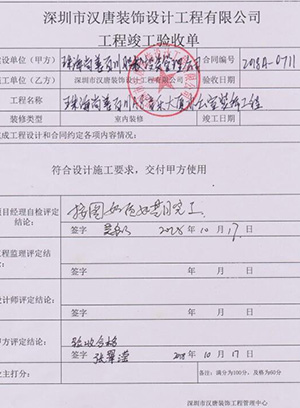 深圳市汉唐装饰设计工程有限公司
工程竣工验收单
建设单位（甲方） 合同编号 2018A-0711
施工单位（乙方） 深圳市汉唐装饰设计工程有限公司 验收日期
工程名称
装修类型 室内装饰 竣工日期
完成工程设计和合同约定各项内容情况：
符合设计施工要求，交付甲方使用
项目经理自检评定结论： 按图 完工
签字 2018年10月17日
工程监理评定结论：
签字 年 月 日
设计师评定结论：
签字 年 月 日
甲方评定结论： 验收合格
签字 2018年10月17日
业主打分： 备注：满分为100分，及格为60分
深圳市汉唐装饰工程管理中心